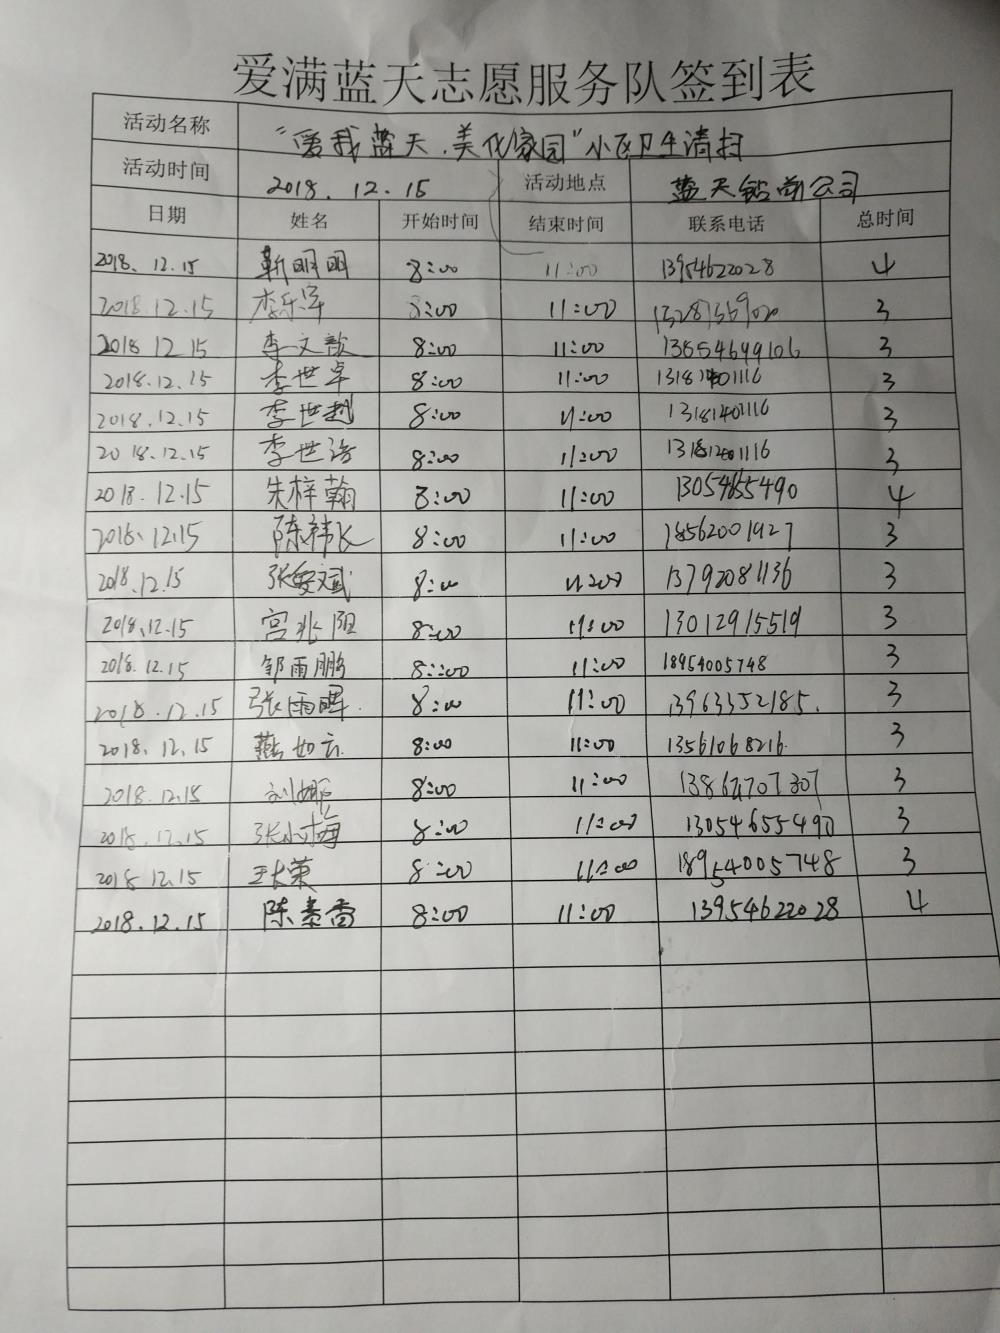 爱满蓝天志愿服务队签到表
活动名称 “爱我蓝天.美化家园”小区卫生清扫
活动时间 2018.12.15 活动地点 蓝天钻前公司
日期 姓名 开始时间 结束时间 联系电话 总时间
2018.12.15 靳明明 8:00 11:00 13954622028 4
2018.12.15 李乐军 8:00 11:00 3
2018.12.15 李文歆 8:00 11:00 13854649106 3
2018.12.15 李世卓 8:00 11:00 13181401116 3
2018.12.15 李世越 8:00 11:00 13181401116 3
2018.12.15 李世浩 8:00 11:00 13181401116 3
2018.12.15 朱梓翰 8:00 11:00 13054655490 4
2018.12.15 陈祎长 8:00 11:00 18562001927 3
2018.12.15 张安斌 8:00 11:00 13792081136 3
2018.12.15 宫兆阳 8:00 11:00 13012915519 3
2018.12.15 邹雨鹏 8::00 11:00 18954005748 3
2018.12.15 张雨晖. 8:00 11:00 13963352185. 3
2018.12.15 燕如云 8:00 11:00 13561068216. 3
2018.12.15 刘娜 8:00 11:00 13864707307 3
2018.12.15 张小梅 8:00 11:00 13054655490 3
2018.12.15 王大荣 8:00 11:00 18954005748 3
2018.12.15 陈素香 8:00 11:00 13954622028 4